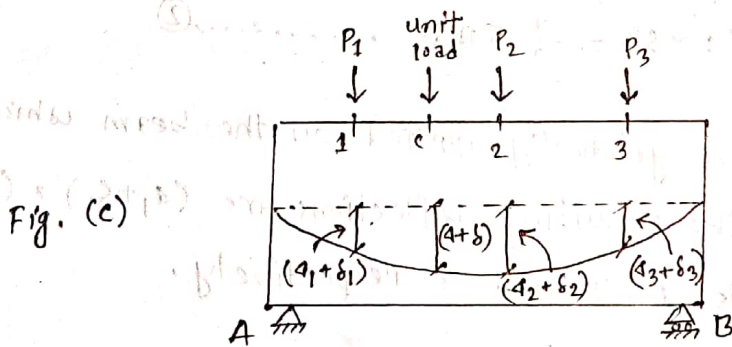 unit
P1 load P2 P3
1 c 2 3
Fig. (c)
(Δ+δ)
(Δ1+δ1) (Δ2+δ2) (Δ3+δ3)
A B